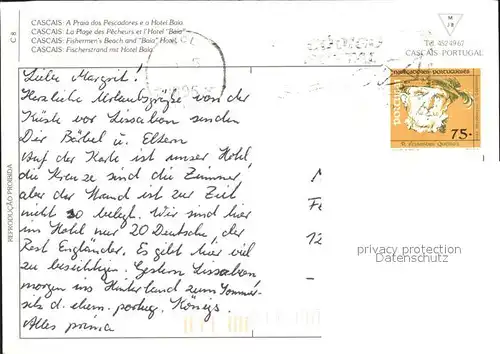 CASCAIS: A Praia dos Pescadores e o Hotel Baía
CASCAIS: La Plage des Pêcheurs et l'Hôtel "Baía"
CASCAIS: Fishermen's Beach and "Baía" Hotel
CASCAIS: Fischerstrand mit Hotel Baía
C 8
REPRODUÇÃO PROIBIDA
Tel. 4524967
CASCAIS-PORTUGAL
NAVEGADORES PORTUGUESES
PORTUGAL
75.-
P. Fernandes Queirós
Liebe Margrit!
Herzliche Urlaubsgrüße von der
Küste vor Lissabon senden
Dir Bärbel u. Eltern
Auf der Karte ist unser Hotel,
die Kreuze sind die Zimmer,
aber der Strand ist zur Zeit
nicht so belegt. Wir sind hier
im Hotel nur 20 Deutsche, der
Rest Engländer. Es gibt hier viel
zu besichtigen. Gestern Lissabon
morgen ins Hinterland zum Sommer-
sitz d. ehem. portug. Königs.
Alles prima
privacy protection
Datenschutz